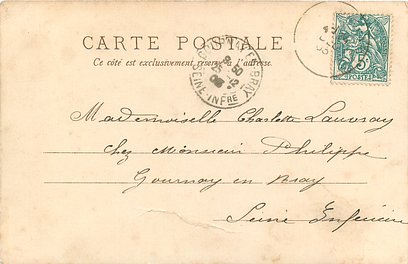 CARTE POSTALE
Ce côté est exclusivement réservé à l'adresse
GOURNAY-EN-BRAY
SEINE-INFRE
5
POSTES
Mademoiselle Charlotte Lauvray
chez Monsieur Philippe
Gournay en Bray
Seine Inférieure